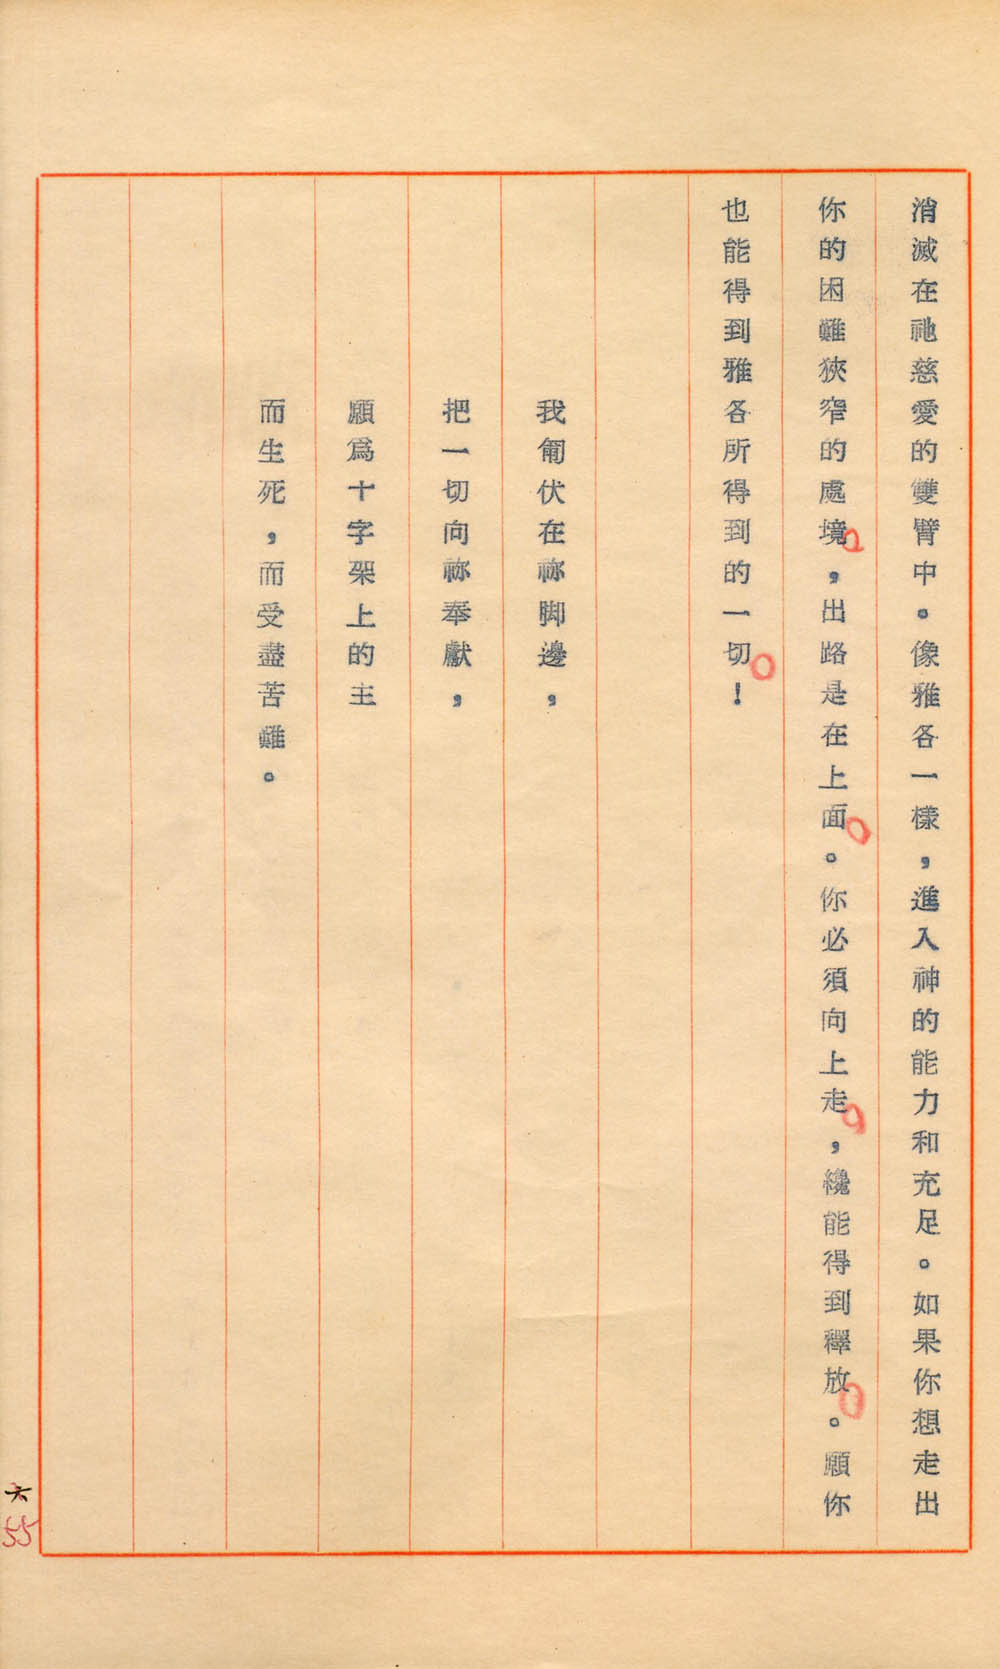 消滅在祂慈愛的雙臂中。像雅各一樣，進入神的能力和充足。如果你想走出
你的困難狹窄的處境，出路是在上面。你必須向上走，纔能得到釋放。願你
也能得到雅各所得到的一切！
我匍伏在祢脚邊，
把一切向祢奉獻，
願爲十字架上的主
而生死，而受盡苦難。
六
55